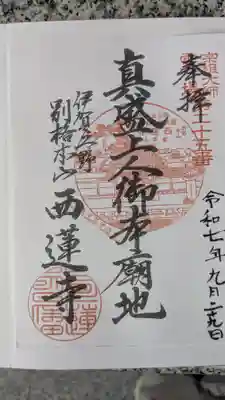 奉拝
十五番
真盛上人御本廟地
伊賀上野
別格本山
西蓮寺
令和七年九月二十九日